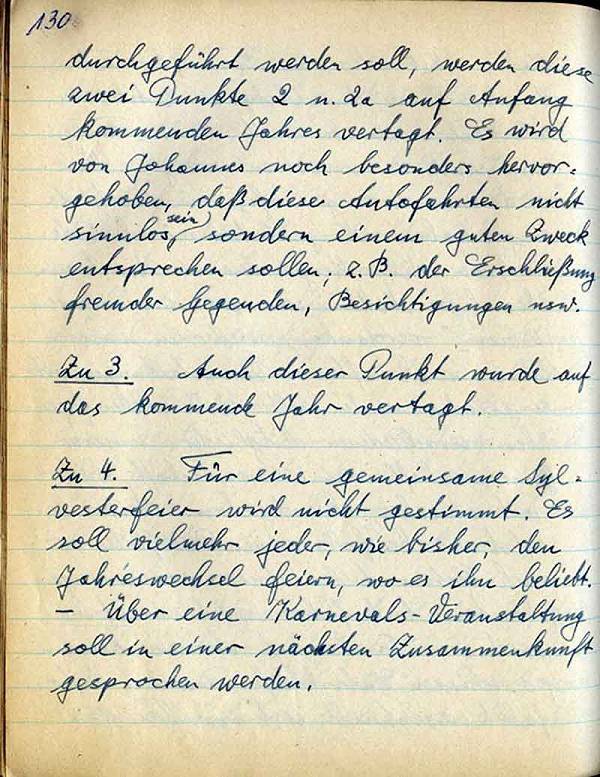 130
durchgeführt werden soll, werden diese
zwei Punkte 2 u. 2a auf Anfang
kommenden Jahres vertagt. Es wird
von Johannes noch besonders hervor=
gehoben, daß diese Autofahrten nicht
sein
sinnlos, sondern einem guten Zweck
entsprechen sollen; z. B. der Erschließung
fremder Gegenden, Besichtigungen usw.
Zu 3. Auch dieser Punkt wurde auf
das kommende Jahr vertagt.
Zu 4. Für eine gemeinsame Syl=
vesterfeier wird nicht gestimmt. Es
soll vielmehr jeder, wie bisher, den
Jahreswechsel feiern, wo es ihm beliebt.
– Über eine Karnevals-Veranstaltung
soll in einer nächsten Zusammenkunft
gesprochen werden.